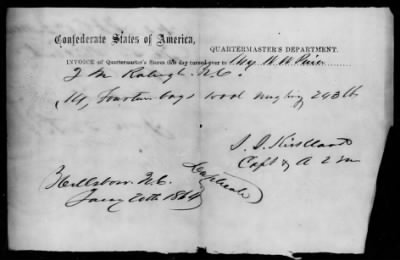 Confederate States of America,
QUARTERMASTER'S DEPARTMENT.
INVOICE of Quartermaster's Stores this day turned over to Maj W. W. Peirce
Q M Raleigh N.C.
14, fourteen bags wool weighing 243 lb
Capt & A Q M
Hillsboro N.C. Duplicate
Jany 20th 1864